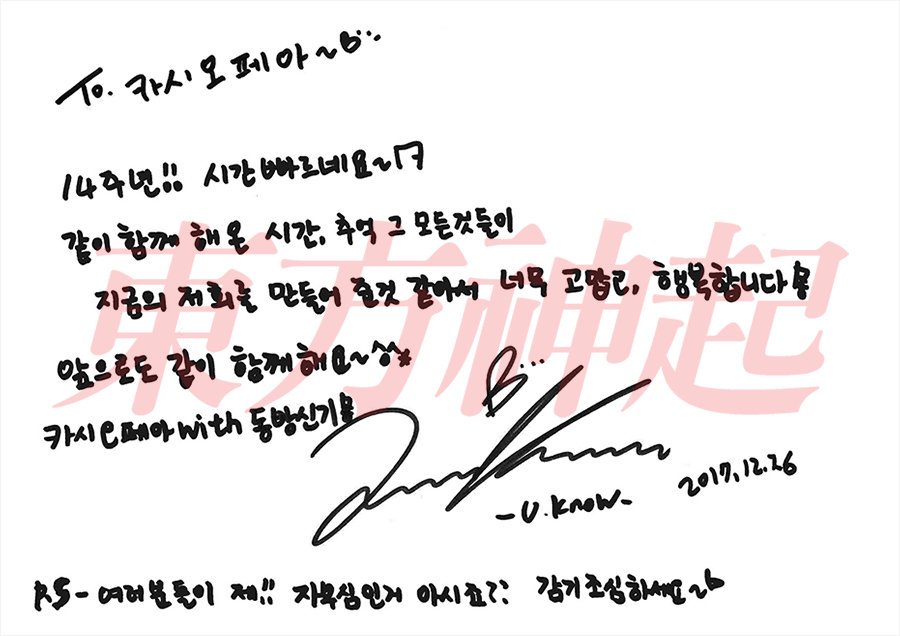 To. 카시오페아~
14주년!! 시간 빠르네요~
같이 함께 해 온 시간, 추억 그 모든것들이
지금의 저희를 만들어 준것 같아서 너무 고맙고, 행복합니다
앞으로도 같이 함께해요~^^*
카시오페아 with 동방신기
東方神起
B...
-U.Know-
2017.12.26
P.S - 여러분들이 제!! 자부심인거 아시죠?? 감기조심하세요~